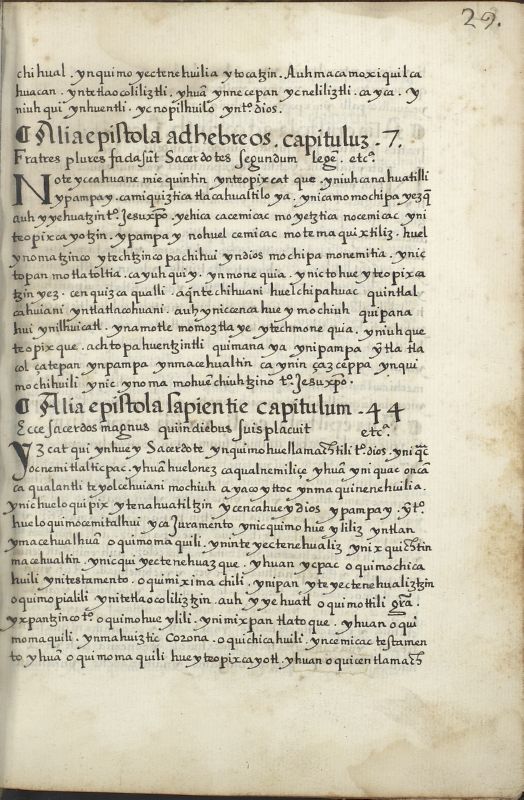 29.
chihual. ynquimo yectenehuilia ytocatzin. Auhmacamoxiquilca
huacan. yntetlaocoliliztli. yhuā ynnecepan ycneliliztli. cayca. y
niuh qui ynhuentli. ycnopilhuilo ynto. dios.
¶ Alia epistola ad hebreos. capitulum. 7.
Fratres plures facta sūt Sacerdotes segundum lege. etca.
Note yccahuane mie quintin ynteopixcat que. yniuh canahuatilli
ypampay. camiquiztica tlacahualtiloya. ynicamo mochipa yezq̄
auh yyehuatzin to. Jesuxp̄o. yehica cacemicac moyetztica nocemicac yni
teopixcayotzin. ypampay nohuel cemicac motemaquixtiliz. huel
ynomatzinco ytechtzinco pachihui yndios mochipa monemitia. ynic
topan motlatoltia. cayuh quiy. ynmonequia. ynictohueyteopixca
tzin yez. cenquizca qualli. aq̄ntechihuani huelchipahuac quintlal
cahuiani yntlatlacohuani. auh yniccenca huey mochiuh quipana
hui ynilhuicatl. ynamotle momoztlaye ytechmonequia. yniuhque
teopixque. achtopa huentzintli quimanaya ynipampa yn̄ tlatla
col çatepan ynpampa ynmacehualtin caynin çaz ceppa ynqui
mochihuili ynic ynoma mohuēchiuhtzino to. Jesuxp̄o.
¶ Alia epistola sapientie capitulum. 44
Ecce sacerdos magnus qui in diebus suis placuit etca.
Yz cat qui ynhuey Sacerdote ynquimohuellamachtili to. dios. yniquac
ocnemitlalticpac. yhuā huelonez caqualnemiliçe yhuā yniquac oncā
ca qualantli teyolcehuiani mochiuh ayac oyttoc ynmaquinenehuilia.
ynichueloquipix ytenahuatiltzin ycenca huey dios ypampay. yn̄to.
hueloquimocemitalhui yca Juramento ynicquimohueyliliz yntlan
ymacehualhuā oquimomaquili. yninteyectenehualiz ynixquichtin
macehualtin. ynicquiyectenehuazque. yhuan ycpac oquimochica
huili ynitestamento. oquimiximachili. ynipan yteyectenehualiztzin
oquimopialili ynitetlaocoliliztzin. auh yyehuatl oquimottili gr̄a.
yxpantzinco to. oquimohueylili. ynimixpan tlatoque. yhuan oqui
momaquili. ynmahuiztic corona. oquichicahuili. yncemicac testamen
to yhuā oquimomaquili hueyteopixcayotl. yhuan oquicentlamach